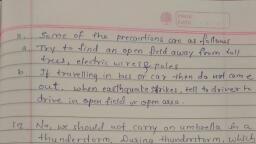 11. Some of the precautions are as follows
a. Try to find an open field away from tall
trees, electric wires & poles
b. If travelling in bus or car then do not come
out. when earthquake strikes, tell to driver to
drive in open field or open area.
12 No, we should not carry an umbrella in a
thunderstorm. During thunderstorm, which